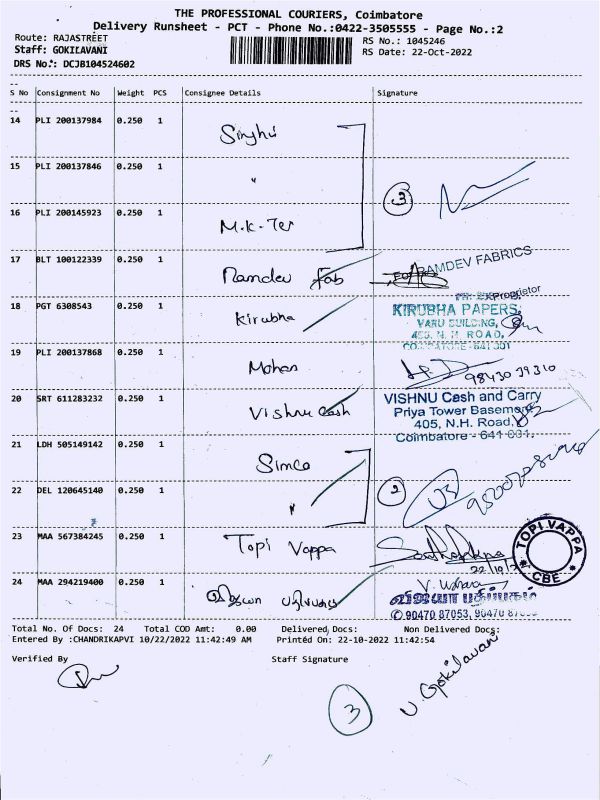 THE PROFESSIONAL COURIERS, Coimbatore
Delivery Runsheet - PCT - Phone No.:0422-3505555 - Page No.:2
Route: RAJASTREET
RS No.: 1045246
Staff: GOKILAVANI
RS Date: 22-Oct-2022
DRS No.: DCJB104524602
S No Consignment No Weight PCS Consignee Details Signature
14 PLI 200137984 0.250 1 Singhvi
15 PLI 200137846 0.250 1 "
3
16 PLI 200145923 0.250 1 M.K. Tex
17 BLT 100122339 0.250 1 Ramdev Fab For RAMDEV FABRICS
Proprietor
18 PGT 6308543 0.250 1 Kirubha KIRUBHA PAPERS,
VARU BUILDING,
N. H. ROAD,
COIMBATORE-641 001
19 PLI 200137868 0.250 1 Mohan
9843039310
20 SRT 611283232 0.250 1 Vishnu Cash VISHNU Cash and Carry
Priya Tower Basement
405, N.H. Road,
Coimbatore - 641 001.
21 LDH 505149142 0.250 1 Simco
22 DEL 120645140 0.250 1 "
2
23 MAA 567384245 0.250 1 Topi Vappa
TOPI VAPPA
* CBE *
22/10/22
24 MAA 294219400 0.250 1 விஜயா பதிப்பகம் V. Ushara
விஜயா பதிப்பகம்
90470 87053, 90470
Total No. Of Docs: 24 Total COD Amt: 0.00 Delivered Docs: Non Delivered Docs:
Entered By :CHANDRIKAPVI 10/22/2022 11:42:49 AM Printed On: 22-10-2022 11:42:54
Verified By Staff Signature
3
U. Gokilavani